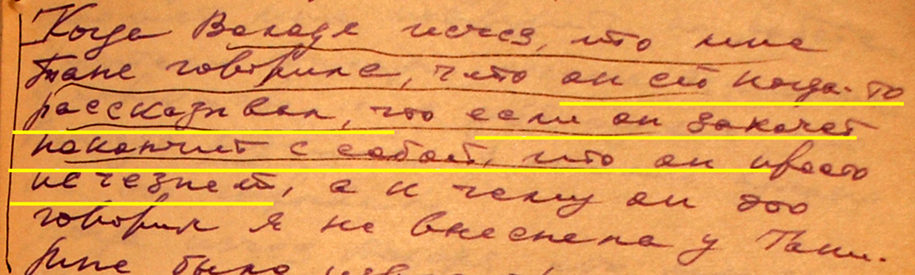 Когда Володя исчез, то мне
Таня говорила, что он ей когда-то
рассказывал, что если он захочет
покончит с собой, то он просто
исчезнет, а к чему он это
говорил я не выяснела у Тани.
Мне было